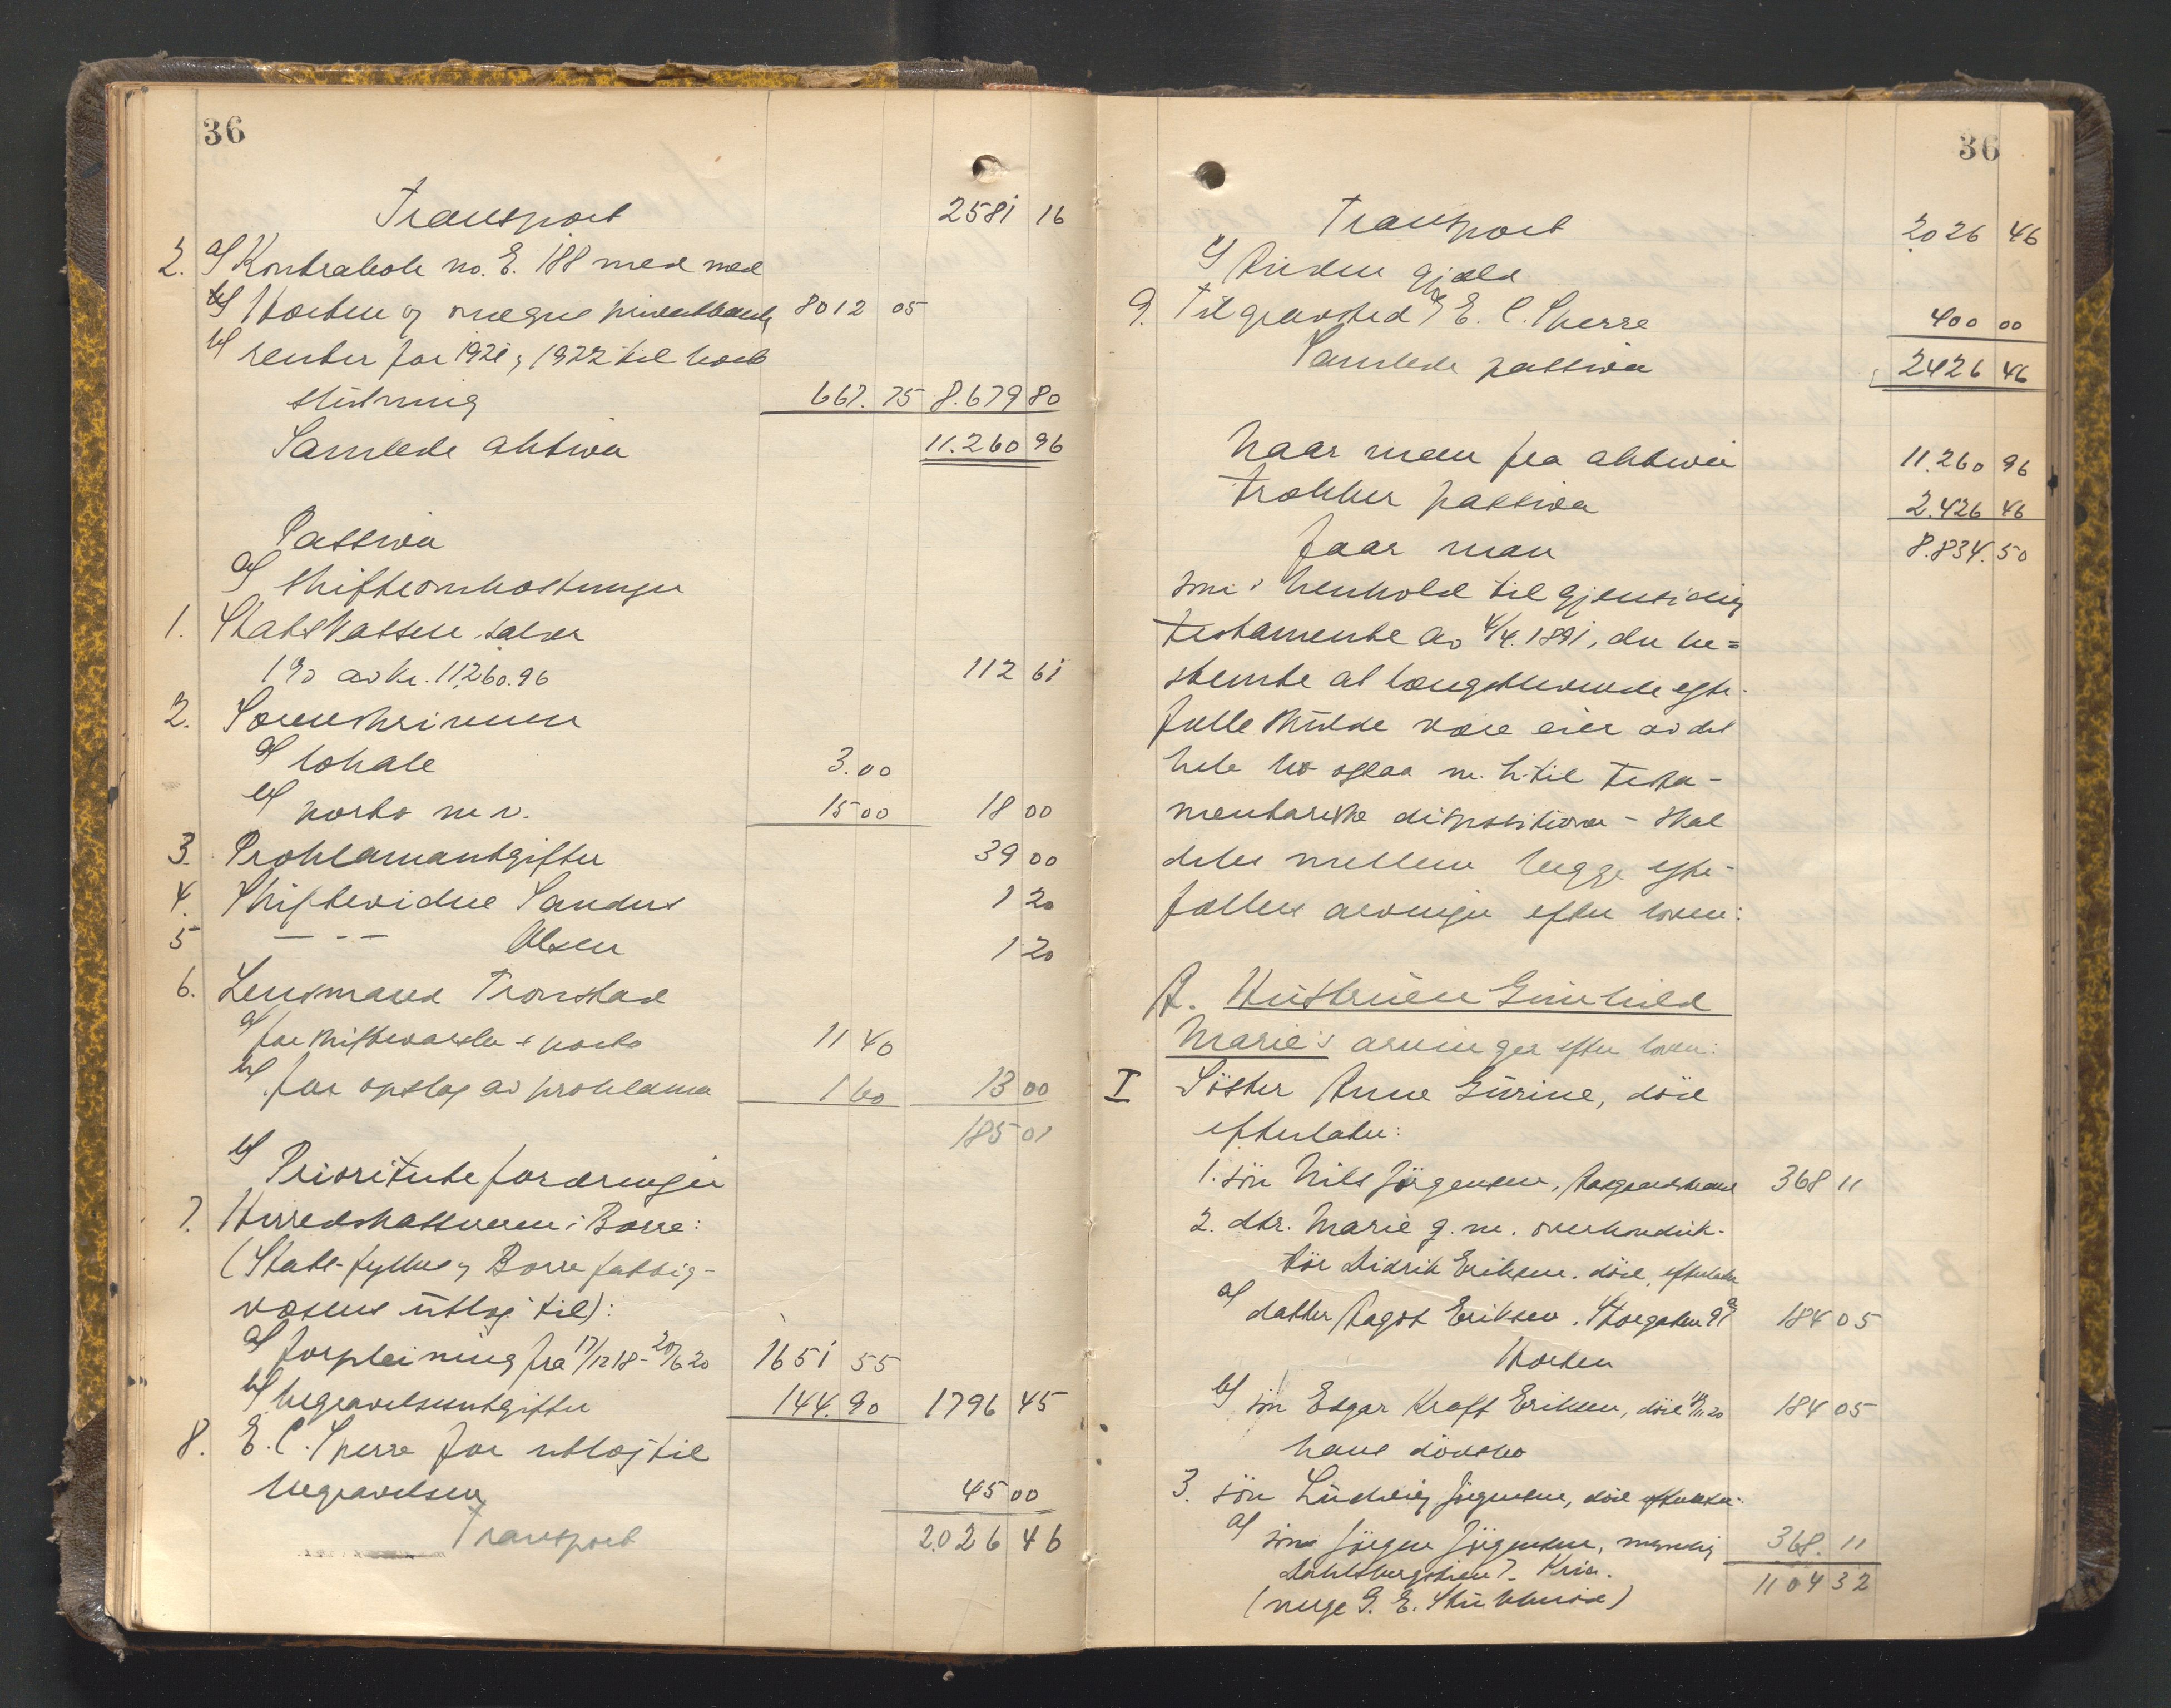 36
Transport 2581 16
2. a) Kontrabok no. E. 188 med
b) Horten og omegns privatbank 8012 05
b) renter for 1921 og 1922 til boets
slutning 667.75 8.679 80
Samlede aktiva 11.260 96
Passiva
a) Skifteomkostninger
1. Statskassen salær
1% av kr. 11260.96 112 61
2. Sorenskriveren
a) lokale 3.00
b) porto m.v. 15 00 18 00
3. Proklamautgifter 39 00
4. Skiftevidne Sanders 1 20
5 — - — Olsen 1 20
6. Lensmand Tronstad
a) for skiftevarsler + porto 11 40
b) for opslag av proklama 1 60 13 00
185 01
b) Prioriterte fordringer
7. Herredskassereren i Borre:
(Stats- fylkes og Borre fattig-
væsens utlæg til):
a) forpleining fra 17/12 18 - 20/6 20 1651 55
b) begravelsesutgifter 144.90 1796 45
8. E. C. Sperre for utlæg til
begravelsen 45 00
Transport 2.026 46
36
Transport 2026 46
c) Anden gjæld
9. Til gravsted E. C. Sperre 400 00
Samlede passiva 2426 46
Naar man fra aktiva 11.260 96
trækker passiva 2.426 46
faar man 8.834.50
som i henhold til gjensidig
testamente av 4/4. 1891, der be=
stemte at længstlevende egte-
fælle skulde være eier av det
hele bo ogsaa m. h. til testa-
mentariske dispositioner - skal
deles mellem begge egte-
fællers arvinger efter loven:
A. Hustruen Gunhild
Marie's arvinger efter loven:
I Söster Anne Gurine, död
efterlater:
1. sön Nils Jörgensen, Aasgaardstrand 368 11
2. dtr. Marie g.m. overkonduk-
tör Didrik Eriksen. död, efterlater
a) datter Aagot Eriksen. Storgaten 9 184 05
Horten
b) sön Edgar Kraft Eriksen, död 20 184 05
hans dödsbo
3. sön Ludvig Jörgensen, död efterlater:
a) sön Jörgen Jörgensen, myndig 368. 11
Dahlsbergstien 7. Kria. 1104 32
(verge G. E. )